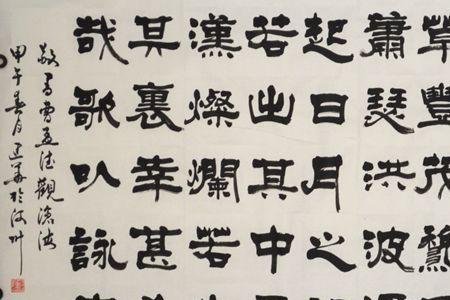 草豐茂
蕭瑟洪波
起日月之
若出其中
漢燦爛若
其裏幸甚
哉歌㕥詠
敬書曹孟德觀滄海
甲午春月於汝州